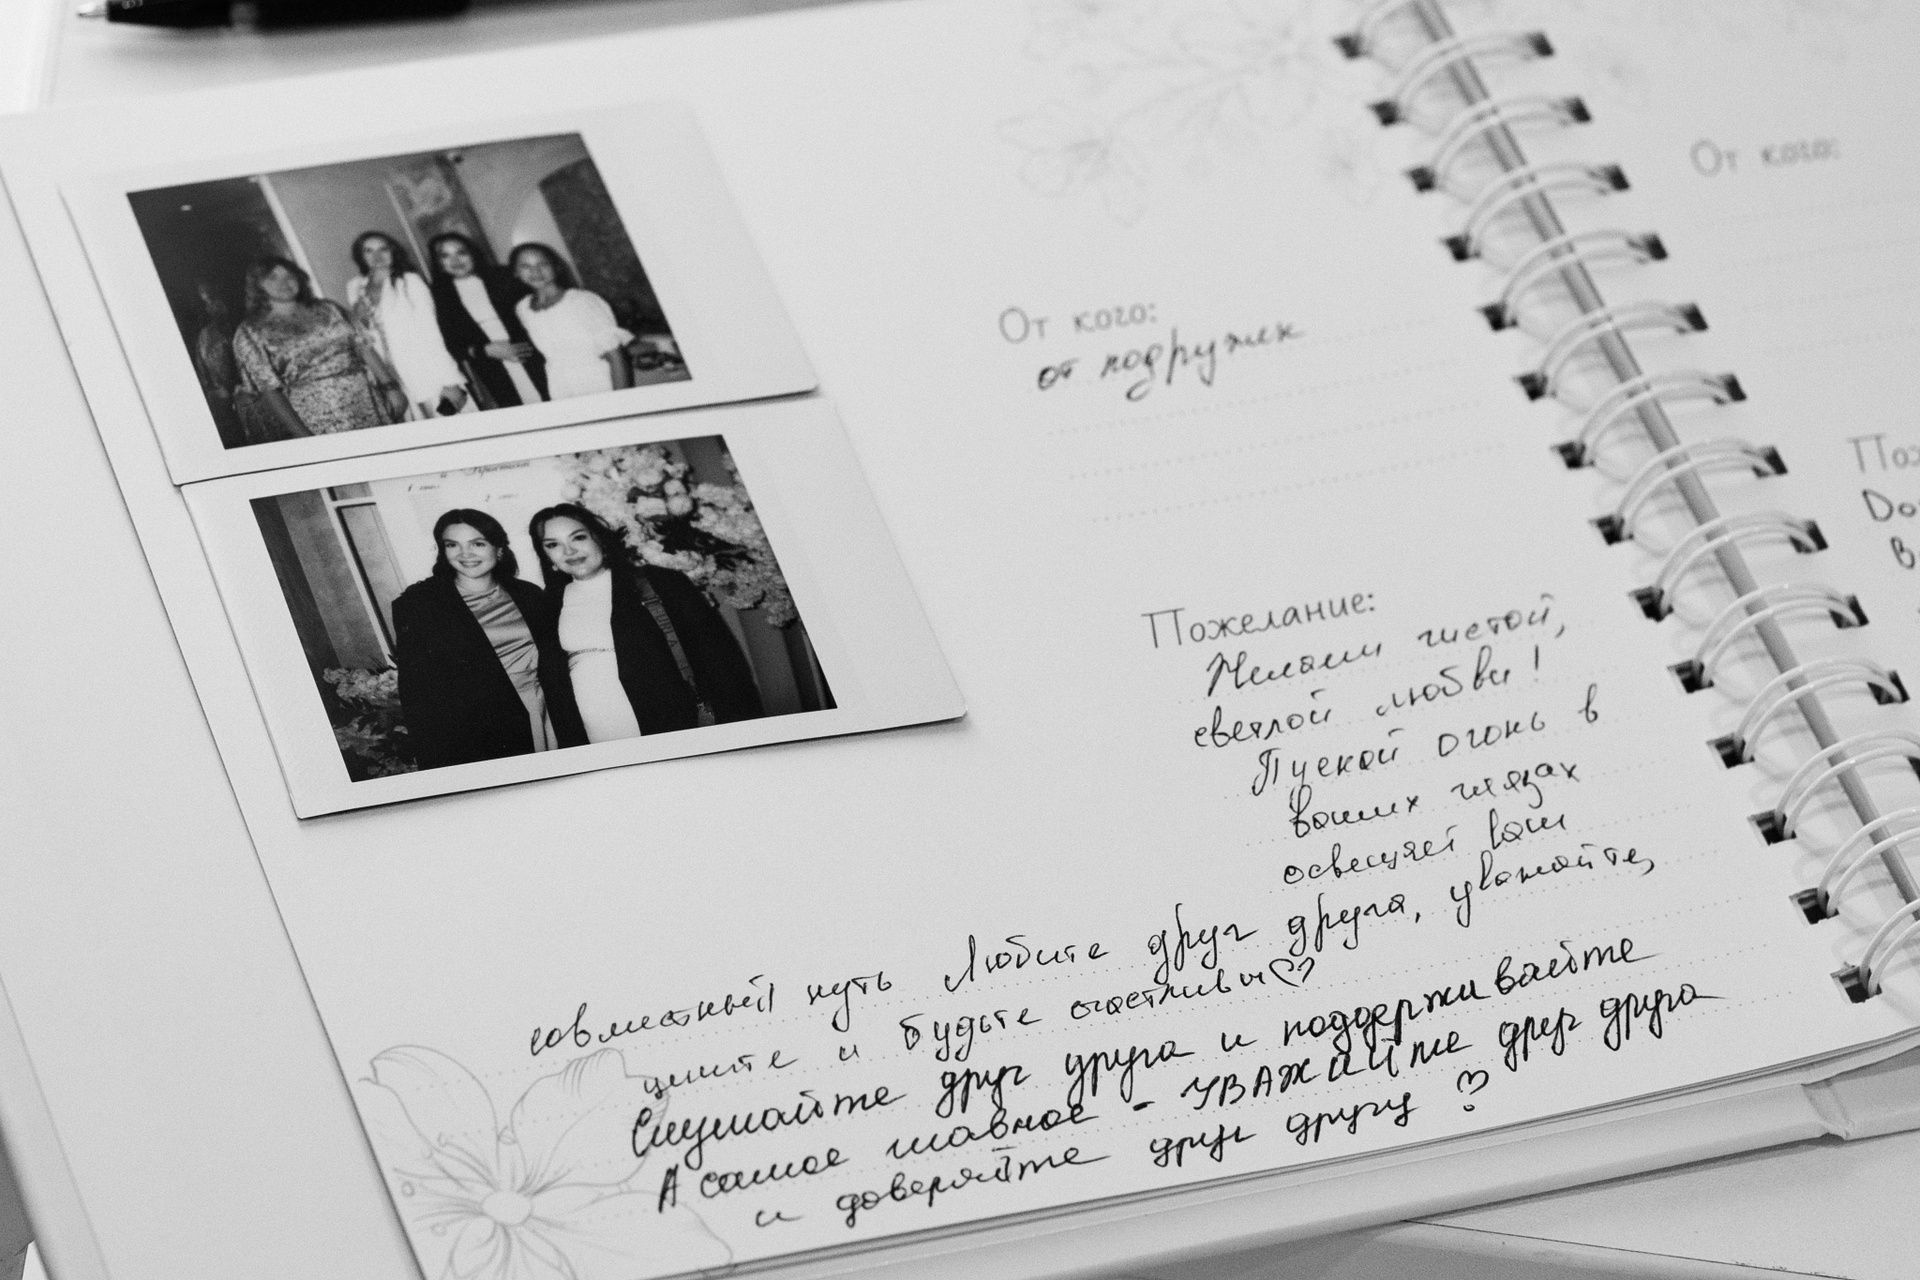 От кого:
от подружек
Пожелание:
Желаем чистой,
светлой любви!
Пускай огонь в
ваших глазах
освещает ваш
совместный путь Любите друг друга, уважайте,
цените и будьте счастливы♡
Слушайте друг друга и поддерживайте
А самое главное - УВАЖАЙте друг друга
и доверяйте друг другу ♡
От кого:
Пож
До
в